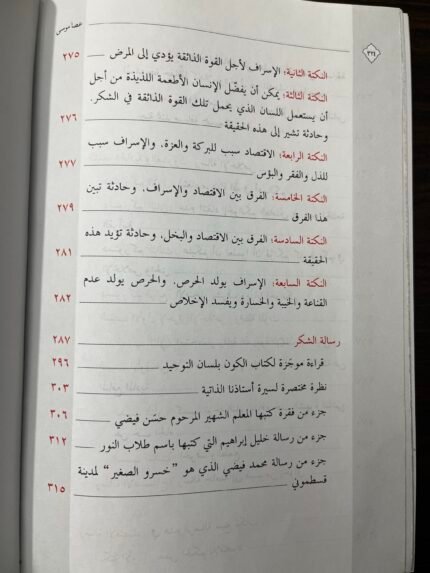 عصا موسى
٣٢٤
النكتة الثانية: الإسراف لأجل القوة الذائقة يؤدي إلى المرض ٢٧٥
النكتة الثالثة: يمكن أن يفضّل الإنسان الأطعمة اللذيذة من أجل
أن يستعمل اللسان الذي يحمل تلك القوة الذائقة في الشكر.
وحادثة تشير إلى هذه الحقيقة ٢٧٦
النكتة الرابعة: الاقتصاد سبب للبركة والعزة، والإسراف سبب
للذل والفقر والبؤس ٢٧٧
النكتة الخامسة: الفرق بين الاقتصاد والإسراف، وحادثة تبين
هذا الفرق ٢٧٩
النكتة السادسة: الفرق بين الاقتصاد والبخل، وحادثة تؤيد هذه
الحقيقة ٢٨١
النكتة السابعة: الإسراف يولد الحرص، والحرص يولد عدم
القناعة والخيبة والخسارة ويفسد الإخلاص ٢٨٢
رسالة الشكر ٢٨٧
قراءة موجَزة لكتاب الكون بلسان التوحيد ٢٩٦
نظرة مختصرة لسيرة أستاذنا الذاتية ٣٠٣
جزء من فقرة كتبها المعلم الشهير المرحوم حسَن فيضي ٣٠٦
جزء من رسالة خليل إبراهيم التي كتبها باسم طلاب النور ٣١٢
جزء من رسالة محمد فيضي الذي هو "خسرو الصغير" لمدينة
قسطموني ٣١٥